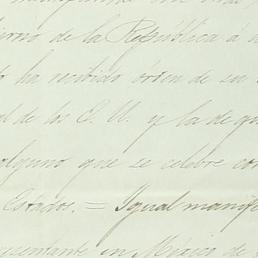 erno de la República á
ha recibido órden de su
al de los E. U. y la de que
alguno que se celebre con
Estados. = Igual manife
resentante en México de